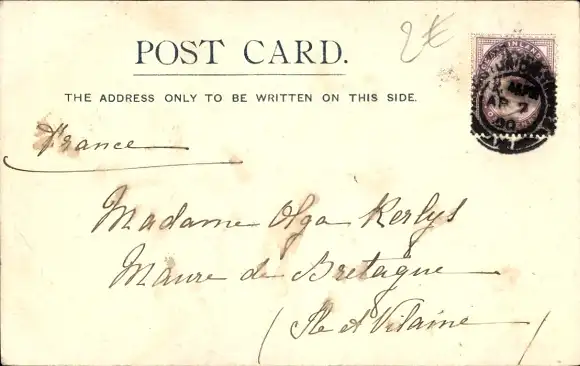 2€
POST CARD.
THE ADDRESS ONLY TO BE WRITTEN ON THIS SIDE.
AP 7
France
Madame Olga Kerlys
Maure de Bretagne
(Ile et Vilaine)